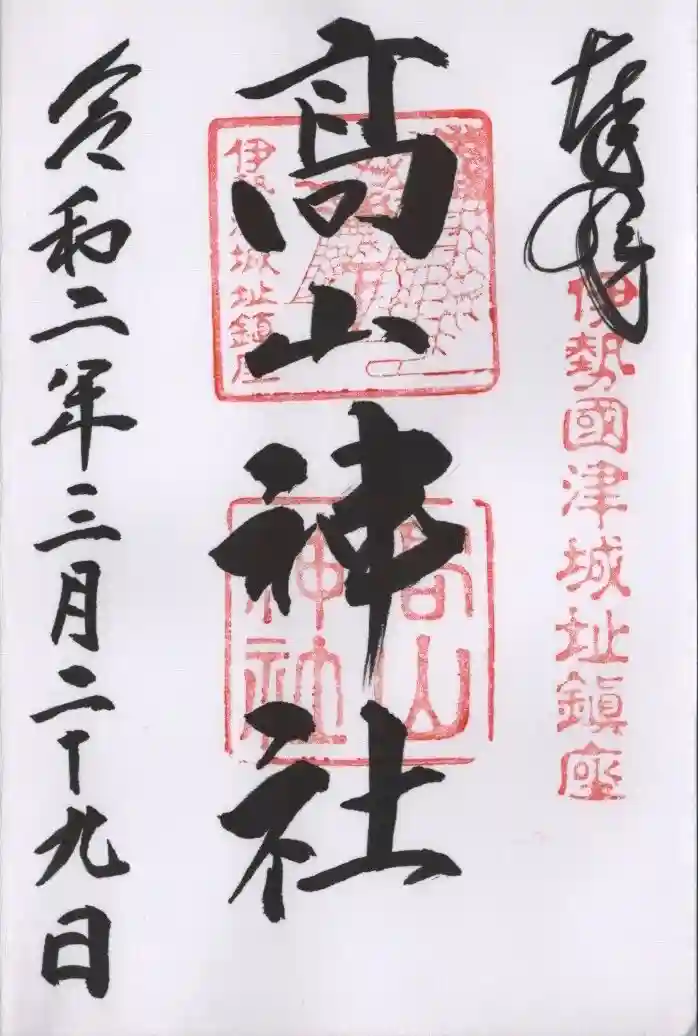 奉拝
伊勢國津城址鎮座
髙山神社
伊勢國津城址鎮座
高山神社
令和二年三月二十九日